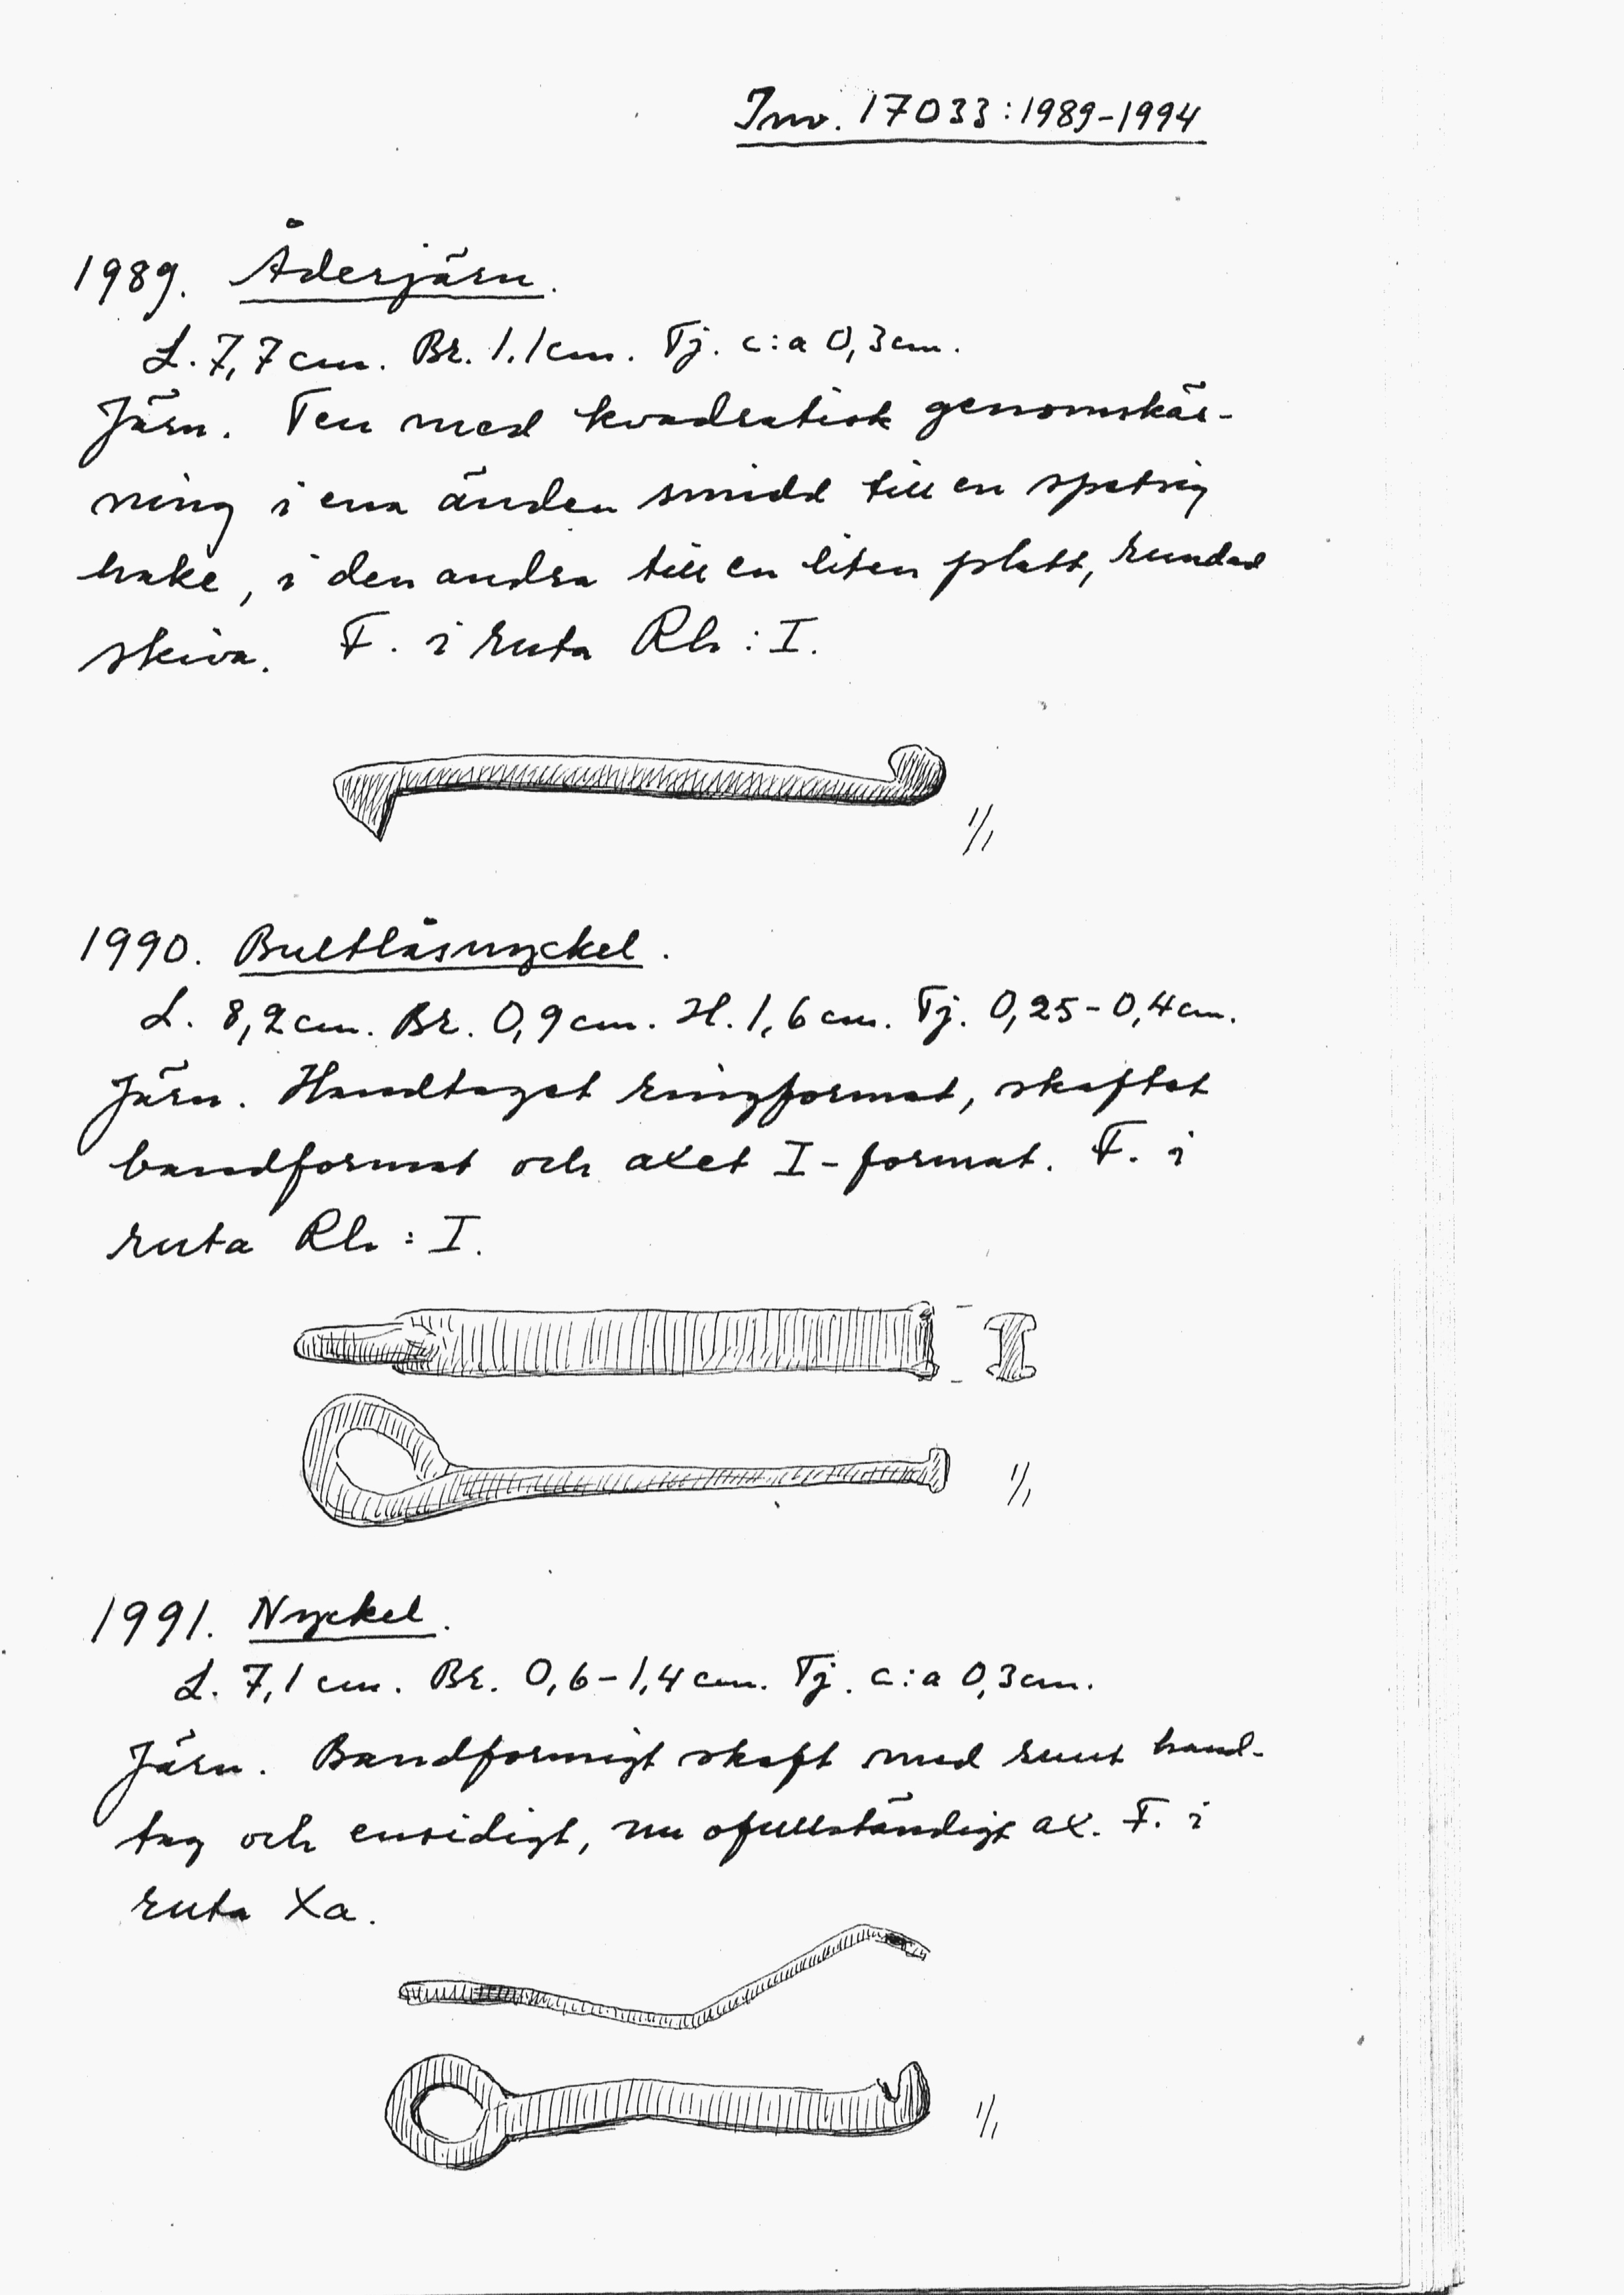 Inv. 17033:1989-1994
1989. Åderjärn.
L. 7,7 cm. Br. 1,1 cm. Tj. c:a 0,3 cm.
Järn. Ten med kvadratisk genomskär-
ning i ena änden smidd till en spetsig
hake, i den andra till en liten platt, rundad
skiva. F. i ruta Rh: I.
1/1
1990. Bultlåsnyckel.
L. 8,2 cm. Br. 0,9 cm. H. 1,6 cm. Tj. 0,25-0,4 cm.
Järn. Handtaget ringformat, skaftet
bandformat och axet I-format. F. i
ruta Rh: I.
1/1
1991. Nyckel.
L. 7,1 cm. Br. 0,6-1,4 cm. Tj. c:a 0,3 cm.
Järn. Bandformigt skaft med runt hand-
tag och ensidigt, nu ofullständigt ax. F. i
ruta Xa.
1/1